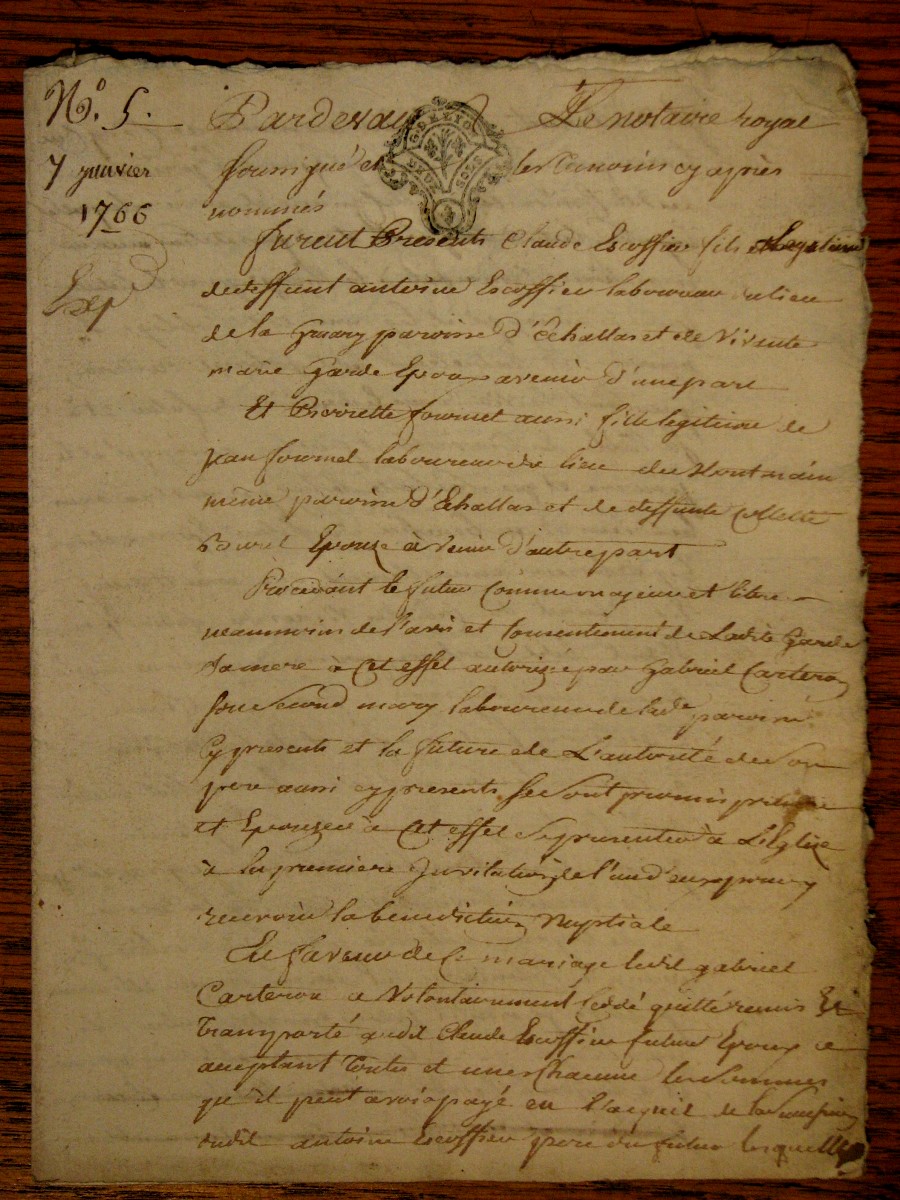 N.º 5.
7 janvier
1766
Exp
GDELYO
DEUX SOLS
Pardevant Le notaire royal
soussigné et les temoins cy après
nommés
furent Presents Claude Escoffier fils et legitime
de deffunt antoine Escoffier laboureur du lieu
de la paroisse d'Echallas et de Vivente
marie Garde Epoux avenir d'une part
Et Pierrette fournel aussi fille legitime de
jean fournel laboureur du lieu du
même paroisse d'Echallas et de deffunte Collette
Burel Epouze à venir d'autre part
Procedant le futur comme majeur et libre
neaumoins de l'avis et consentement de Ladite Garde
sa mere à cet effet autorizée par Gabriel Carteron
son second mary laboureur de lade paroisse
cy presents et la future de L'autorité de son
pere aussi cy presents se sont promis prendre
et Epouzer à cet effet se presenter à L'Eglize
à la premiere Invitation de l'un d'eux pour y
recevoir la benediction Nuptiale
En faveur de ce mariage ledit gabriel
Carteron a Volontairement cedé quitté remis Et
Transporté audit Claude Escoffier futur Epoux ce
acceptant Toutes et unes Chacune les sommes
qu'il peut avoir payé en l'acquit de la
dudit antoine Escoffier pere du futur lesquelles